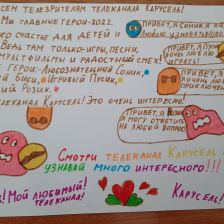 СЕМ ТЕЛЕЗРИТЕЛЯМ ТЕЛЕКАНАЛА КАРУСЕЛЬ!
МЫ ГЛАВНЫЕ ГЕРОИ-2022.
СЧАСТЬЕ ДЛЯ ДЕТЕЙ И
ВЕДЬ ТАМ ТОЛЬКО: ИГРЫ, ПЕСНИ,
МУЛЬТФИЛЬМЫ И РАДОСТНЫЙ СМЕХ!
ГЕРОИ: ЛЮБОЗНАТЕЛЬНЫЙ СОНИК,
ИГРИВЫЙ ПУСИК,
РОЗИК.
КАРУСЕЛЬ! ЭТО ОЧЕНЬ ИНТЕРЕСНО!
ПРИВЕТ, Я СОНИК.Я
ЛЮБЛЮ УЗНАВАТЬ
ПРИВЕТ, Я
ОЧЕНЬ ЛЮБЛЮ
ИГРАТЬ!
ПРИВЕТ, Я
ОЧЕНЬ ЛЮБЛЮ
ПРИВЕТ, Я
Я МОГУ ОТВЕТИТЬ
НА ЛЮБОЙ ВОПРОС!
СМОТРИ ТЕЛЕКАНАЛ КАРУСЕЛЬ
УЗНАВАЙ МНОГО ИНТЕРЕСНОГО!!!
МОЙ ЛЮБИМЫЙ
ТЕЛЕКАНАЛ!
КАРУСЕЛЬ